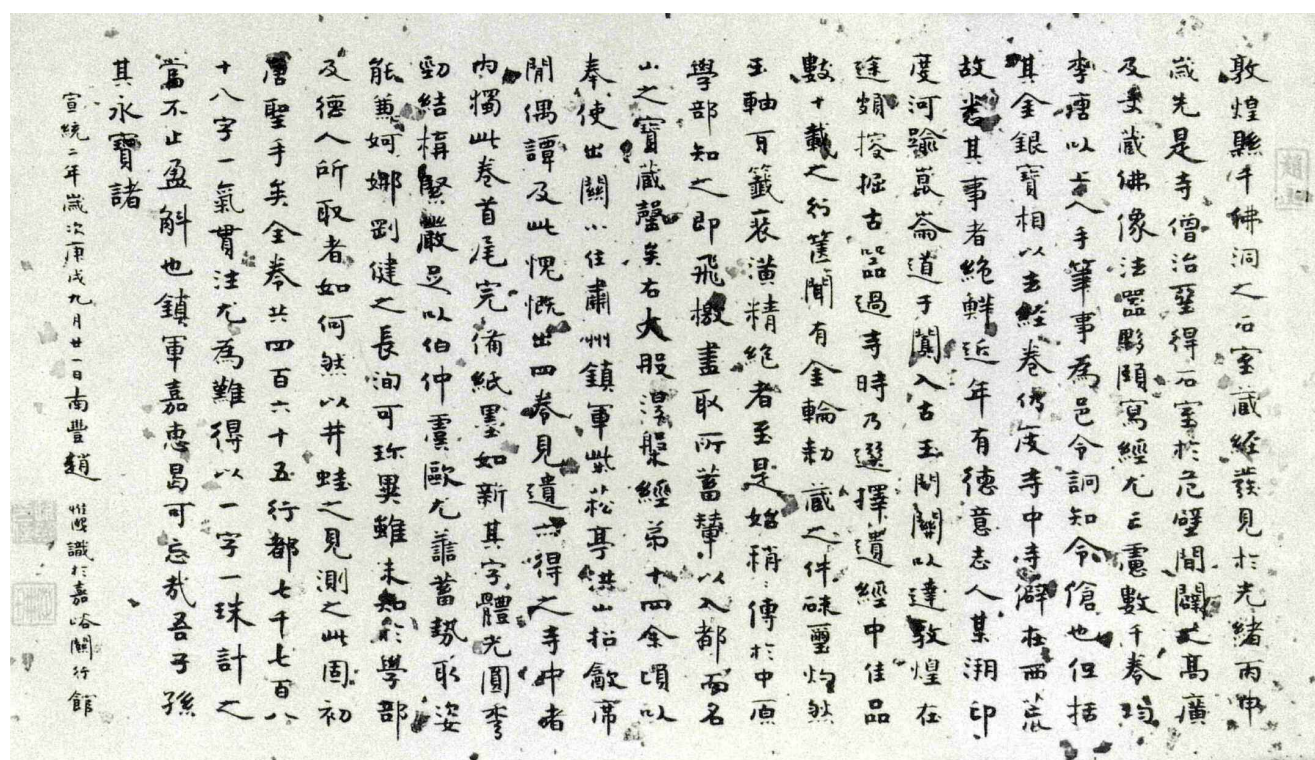 敦煌縣千佛洞之石室藏經發見於光緒丙申
歲先是寺僧治壁得石室於范壁間闢之高廣
及丈藏佛像法器夥頤寫經尤正慮數千卷均
李唐以上人手筆事為邑令詗知令傖也但括
其金銀寶相以去經卷仍庋寺中寺僻在西荒
故悉其事者絶鮮近年有德意志人某溯印
度河踰崑崙道于闐入古玉門關以達敦煌在
途頗搜掘古器過寺時乃選擇遺經中佳品
數十載之行篋聞有金輪勅藏之件硃璽灼然
玉軸百籤裝潢精絶者至是始稍稍傳於中原
學部知之即飛檄盡取所蓄輦以入都而名
山之寶藏罄矣右大般涅槃經弟十四余頃以
奉使出關小住肅州鎮軍柴菘亭洪山招飲席
間偶譚及此慨慨出四卷見遺云得之寺中者
内獨此卷首尾完備紙墨如新其字體光圓秀
勁結構緊嚴足以伯仲虞歐尤蓄勢取姿
能兼婀娜剛健之長洵可珎異雖未知於學部
及德人所取者如何然以井蛙之見測之此固初
唐聖手矣全卷共四百六十五行都七千七百八
十八字一氣貫注尤為難得以一字一珠計之
當不止盈斛也鎮軍嘉惠曷可忘哉吾子孫
其永寶諸
宣統二年歲次庚戌九月廿一日南豐趙惟熙識於嘉峪關行館